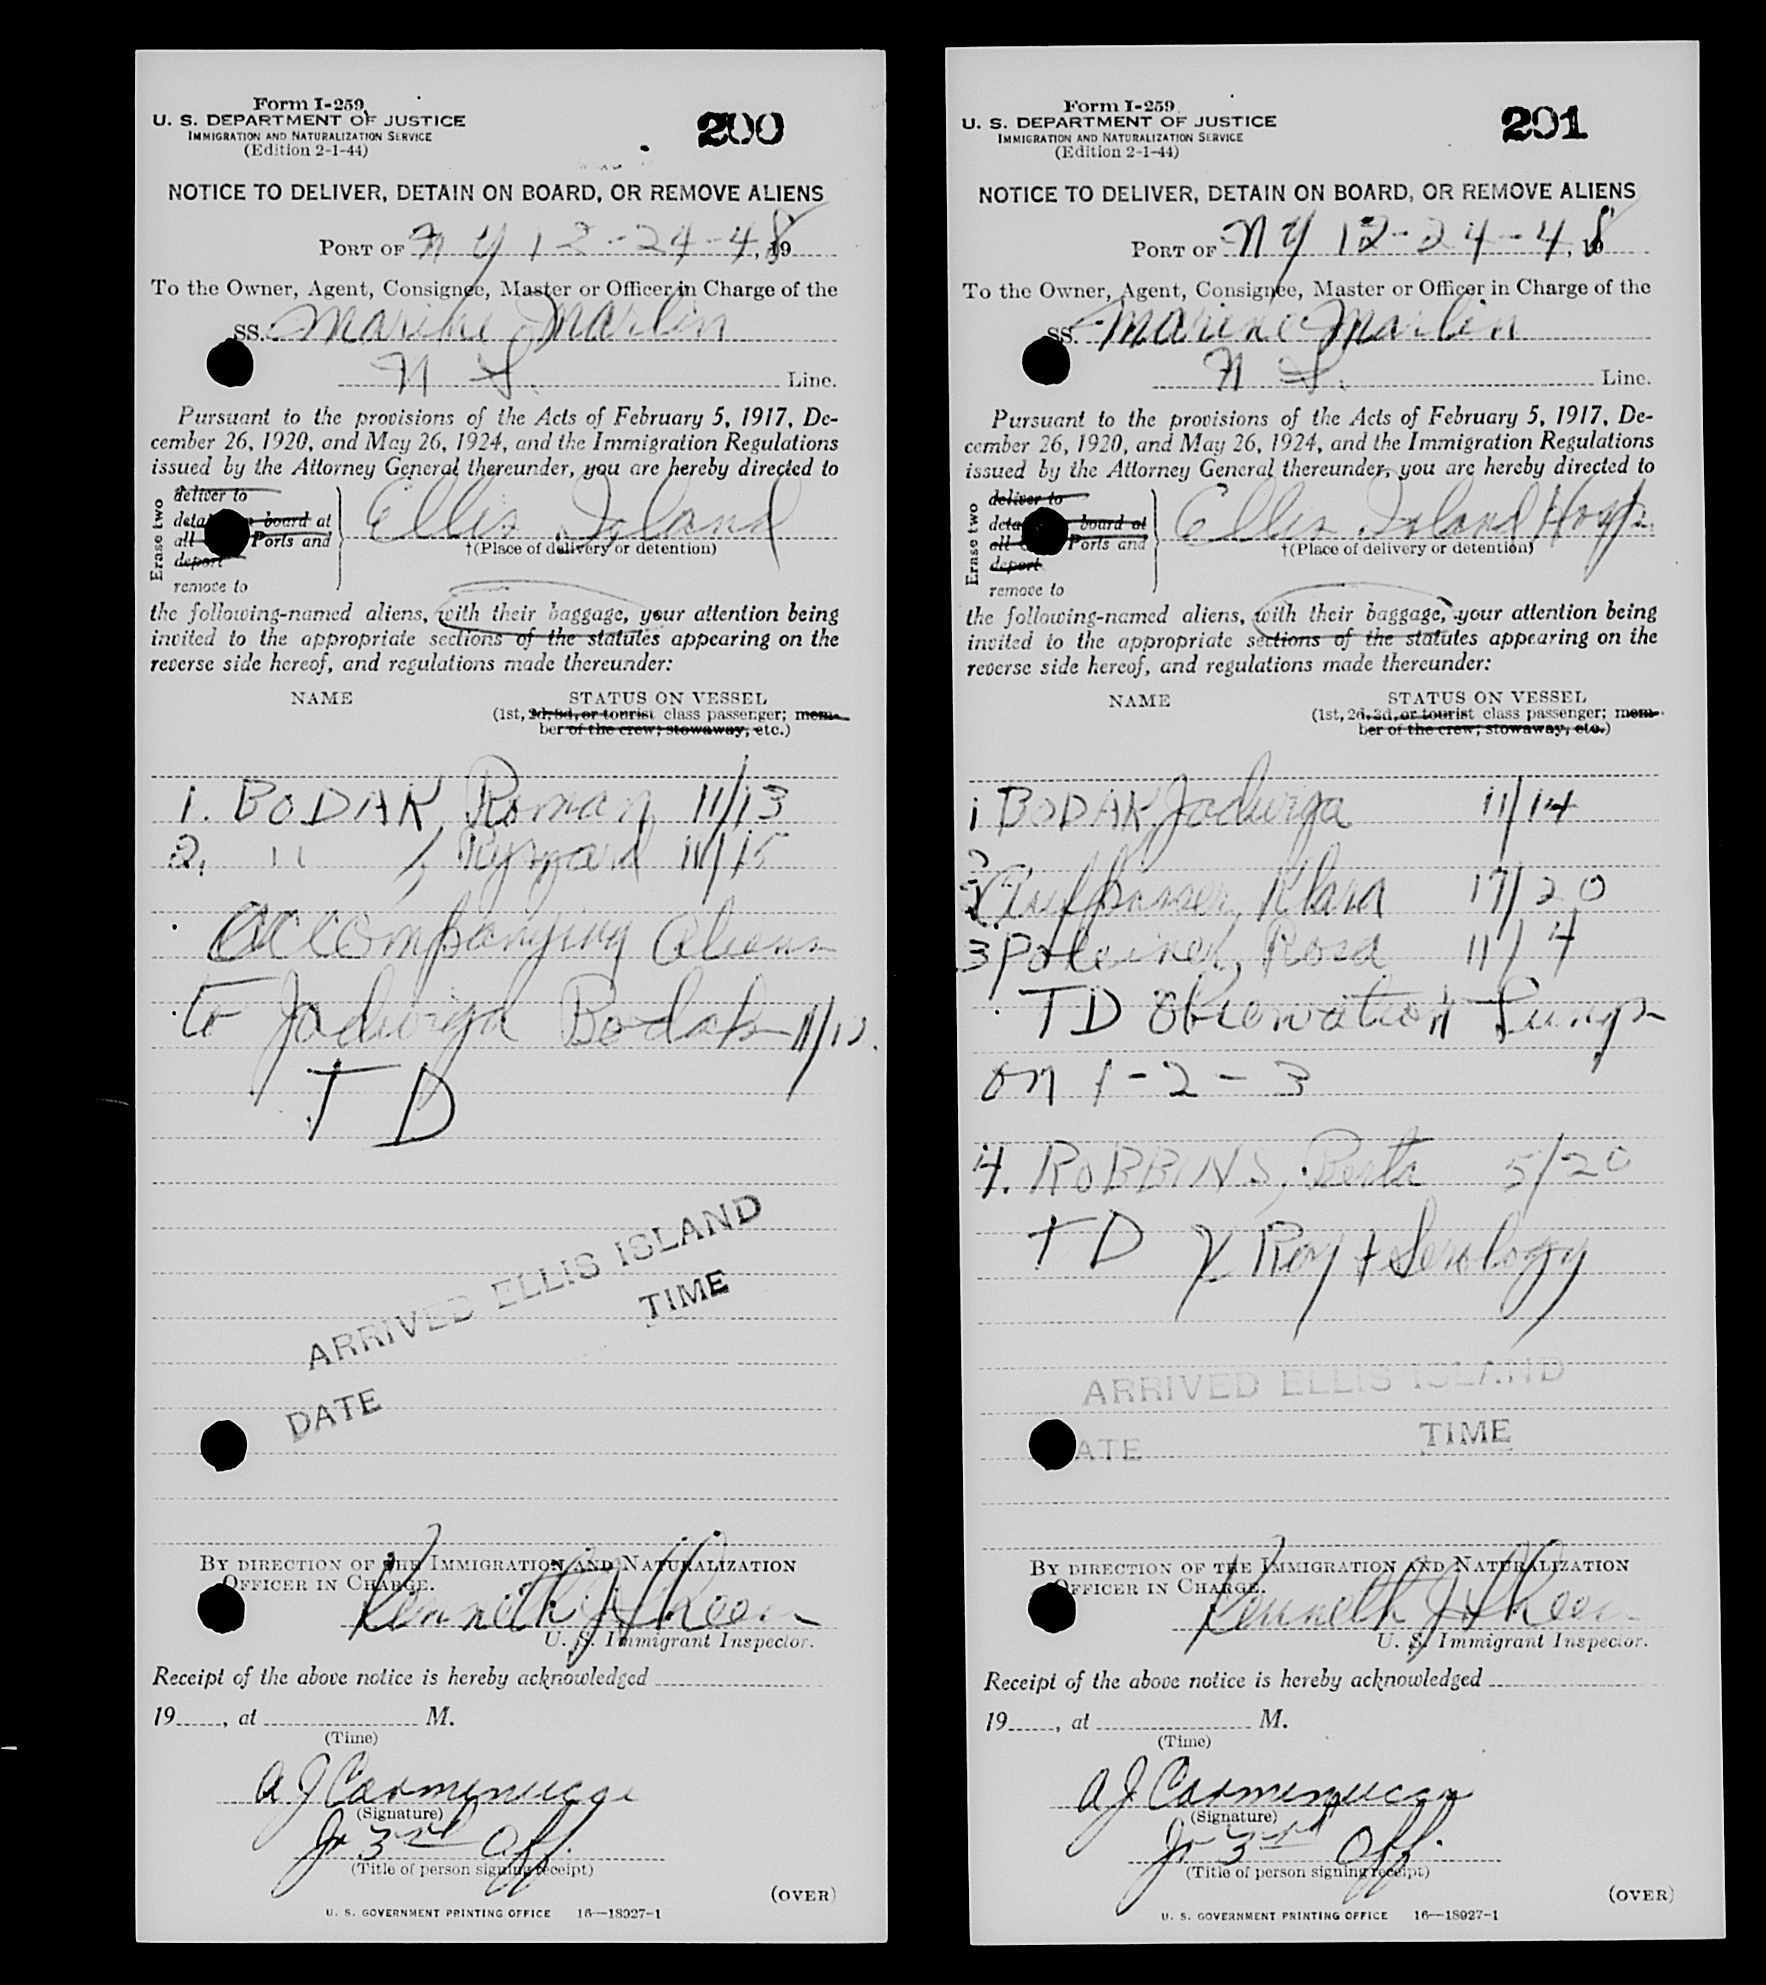 Form I-259
U. S. DEPARTMENT OF JUSTICE
IMMIGRATION AND NATURALIZATION SERVICE
(Edition 2-1-44)
200
NOTICE TO DELIVER, DETAIN ON BOARD, OR REMOVE ALIENS
PORT OF N Y 12-24-48, 19
To the Owner, Agent, Consignee, Master or Officer in Charge of the
SS. Marine Marlin
Line.
Pursuant to the provisions of the Acts of February 5, 1917, De-
cember 26, 1920, and May 26, 1924, and the Immigration Regulations
issued by the Attorney General thereunder, you are hereby directed to
Erase two
deliver to
board at
all Ports and
deport
remove to
Ellis Island
†(Place of delivery or detention)
the following-named aliens, with their baggage, your attention being
invited to the appropriate sections of the statutes appearing on the
reverse side hereof, and regulations made thereunder:
NAME STATUS ON VESSEL
(1st, 2d, 3d, or tourist class passenger; mem-
ber of the crew; stowaway, etc.)
1. BODAK, Roman 11/13
2. " , Ryszard 11/15
Accompanying aliens
to Jadwiga Bodak
T D
ARRIVED ELLIS ISLAND
TIME
DATE
BY DIRECTION OF THE IMMIGRATION AND NATURALIZATION
OFFICER IN CHARGE.
Kenneth J
U. S. Immigrant Inspector.
Receipt of the above notice is hereby acknowledged
19 , at M.
(Time)
A J
(Signature)
Jr 3rd Off.
(Title of person signing receipt)
(OVER)
U. S. GOVERNMENT PRINTING OFFICE 16—18927-1
Form I-259
U. S. DEPARTMENT OF JUSTICE
IMMIGRATION AND NATURALIZATION SERVICE
(Edition 2-1-44)
201
NOTICE TO DELIVER, DETAIN ON BOARD, OR REMOVE ALIENS
PORT OF N Y 12-24-48, 19
To the Owner, Agent, Consignee, Master or Officer in Charge of the
SS. Marine Marlin
Line.
Pursuant to the provisions of the Acts of February 5, 1917, De-
cember 26, 1920, and May 26, 1924, and the Immigration Regulations
issued by the Attorney General thereunder, you are hereby directed to
Erase two
deliver to
board at
all Ports and
deport
remove to
Ellis Island Hosp.
†(Place of delivery or detention)
the following-named aliens, with their baggage, your attention being
invited to the appropriate sections of the statutes appearing on the
reverse side hereof, and regulations made thereunder:
NAME STATUS ON VESSEL
(1st, 2d, 3d, or tourist class passenger; mem-
ber of the crew; stowaway, etc.)
1 BODAK Jadwiga 11/14
2 Klara 17/20
3 Rosa 11/4
T D Observation Lungs
on 1-2-3
4. ROBBINS, Berta 5/20
T D X Ray + Serology
ARRIVED ELLIS ISLAND
TIME
ATE
BY DIRECTION OF THE IMMIGRATION AND NATURALIZATION
OFFICER IN CHARGE.
Kenneth J
U. S. Immigrant Inspector.
Receipt of the above notice is hereby acknowledged
19 , at M.
(Time)
A J
(Signature)
Jr 3rd Off.
(Title of person signing receipt)
(OVER)
U. S. GOVERNMENT PRINTING OFFICE 16—18927-1